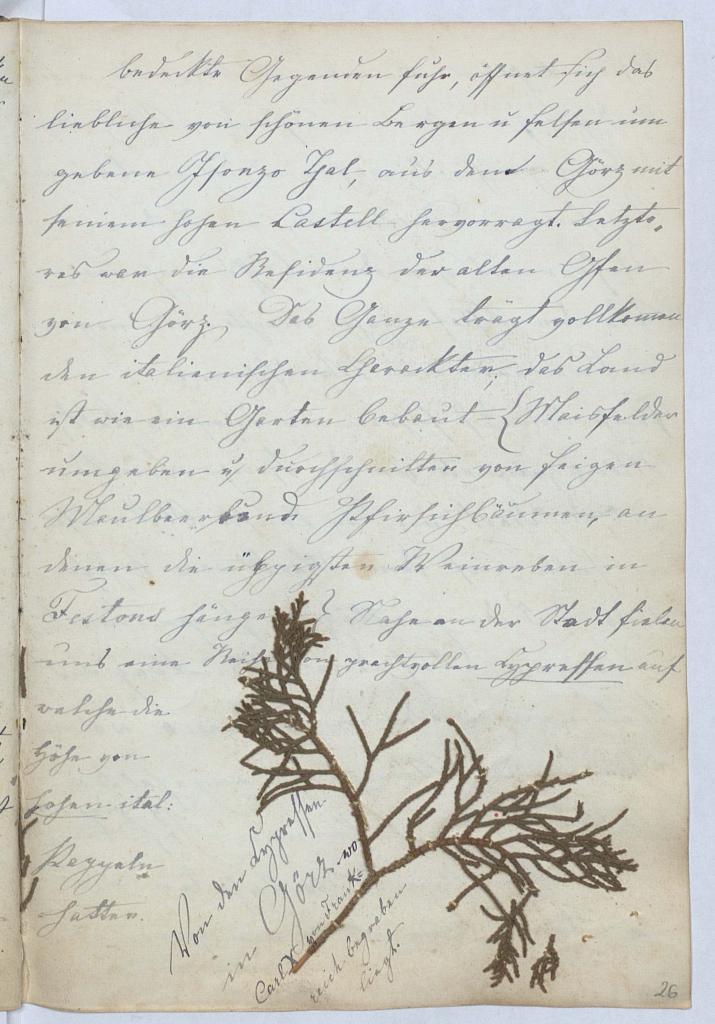 bedeckte Gegenden fuhr, öffnet sich das
liebliche von schönen Bergen u Felsen um
gebene Isonzo Thal, aus dem Görz mit
seinem hohen Castell hervorragt. Letzte-
res war die Residenz der alten Gfen
von Görz. Das Ganze trägt vollkomen
den italienischen Charackter, das Land
ist wie ein Garten bebaut – { Maisfelder
umgeben u durchschnitten von Feigen
Maulbeer und Pfirsichbäumen, an
denen die üppigsten Weinreben in
Festons hänge } Nahe an der Stadt fielen
uns eine Reihe von prachtvollen Cypressen auf
welche die
Höhe von
hohen ital:
Pappeln
hatten.
Von den Cypressen
in Görz wo
Carl X von Frank=
reich begraben
liegt.
26